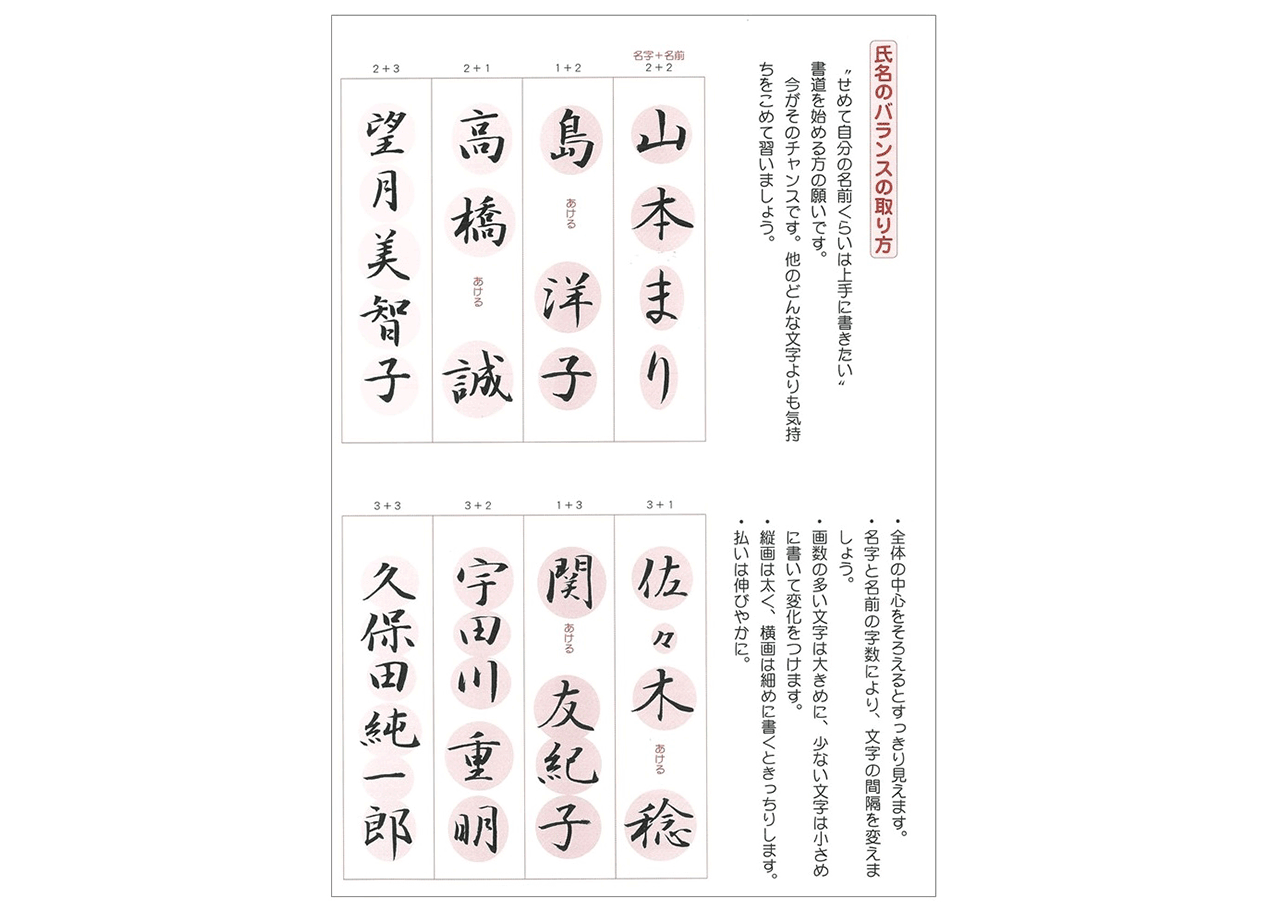 氏名のバランスの取り方
〝せめて自分の名前くらいは上手に書きたい〟
書道を始める方の願いです。
今がそのチャンスです。他のどんな文字よりも気持
ちをこめて習いましょう。
名字+名前
2+2
山本まり
1+2
島 あける 洋子
2+1
高橋 あける 誠
2+3
望月美智子
・全体の中心をそろえるとすっきり見えます。
・名字と名前の字数により、文字の間隔を変えま
しょう。
・画数の多い文字は大きめに、少ない文字は小さめ
に書いて変化をつけます。
・縦画は太く、横画は細めに書くときっちりします。
・払いは伸びやかに。
3+1
佐々木 あける 稔
1+3
関 あける 友紀子
3+2
宇田川重明
3+3
久保田純一郎